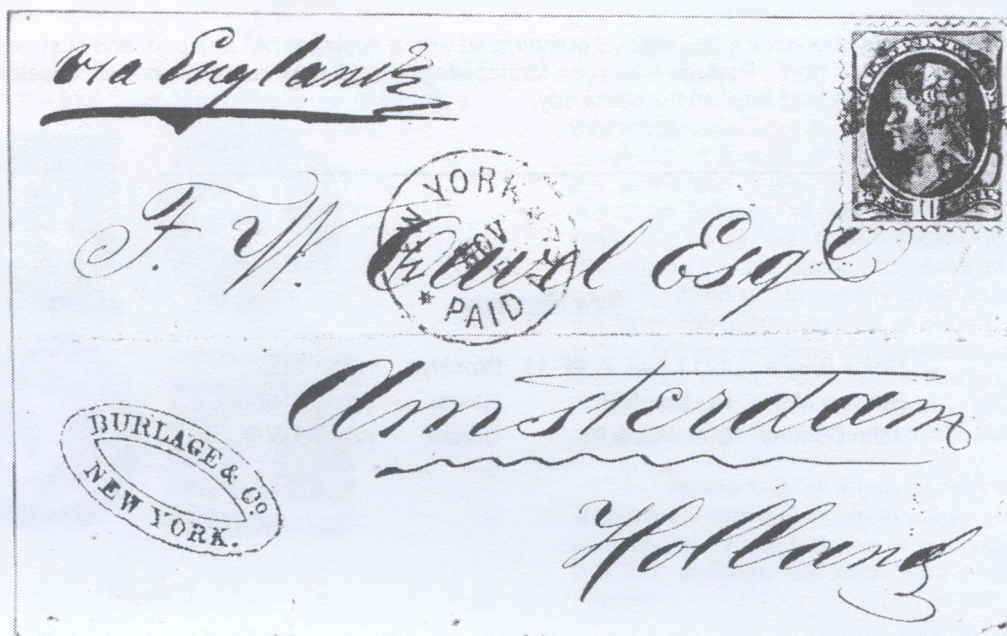 via England
NEW YORK
NOV
* PAID
F. W. Esq
Amsterdam
Holland
BURLAGE & Co
NEW YORK.
10